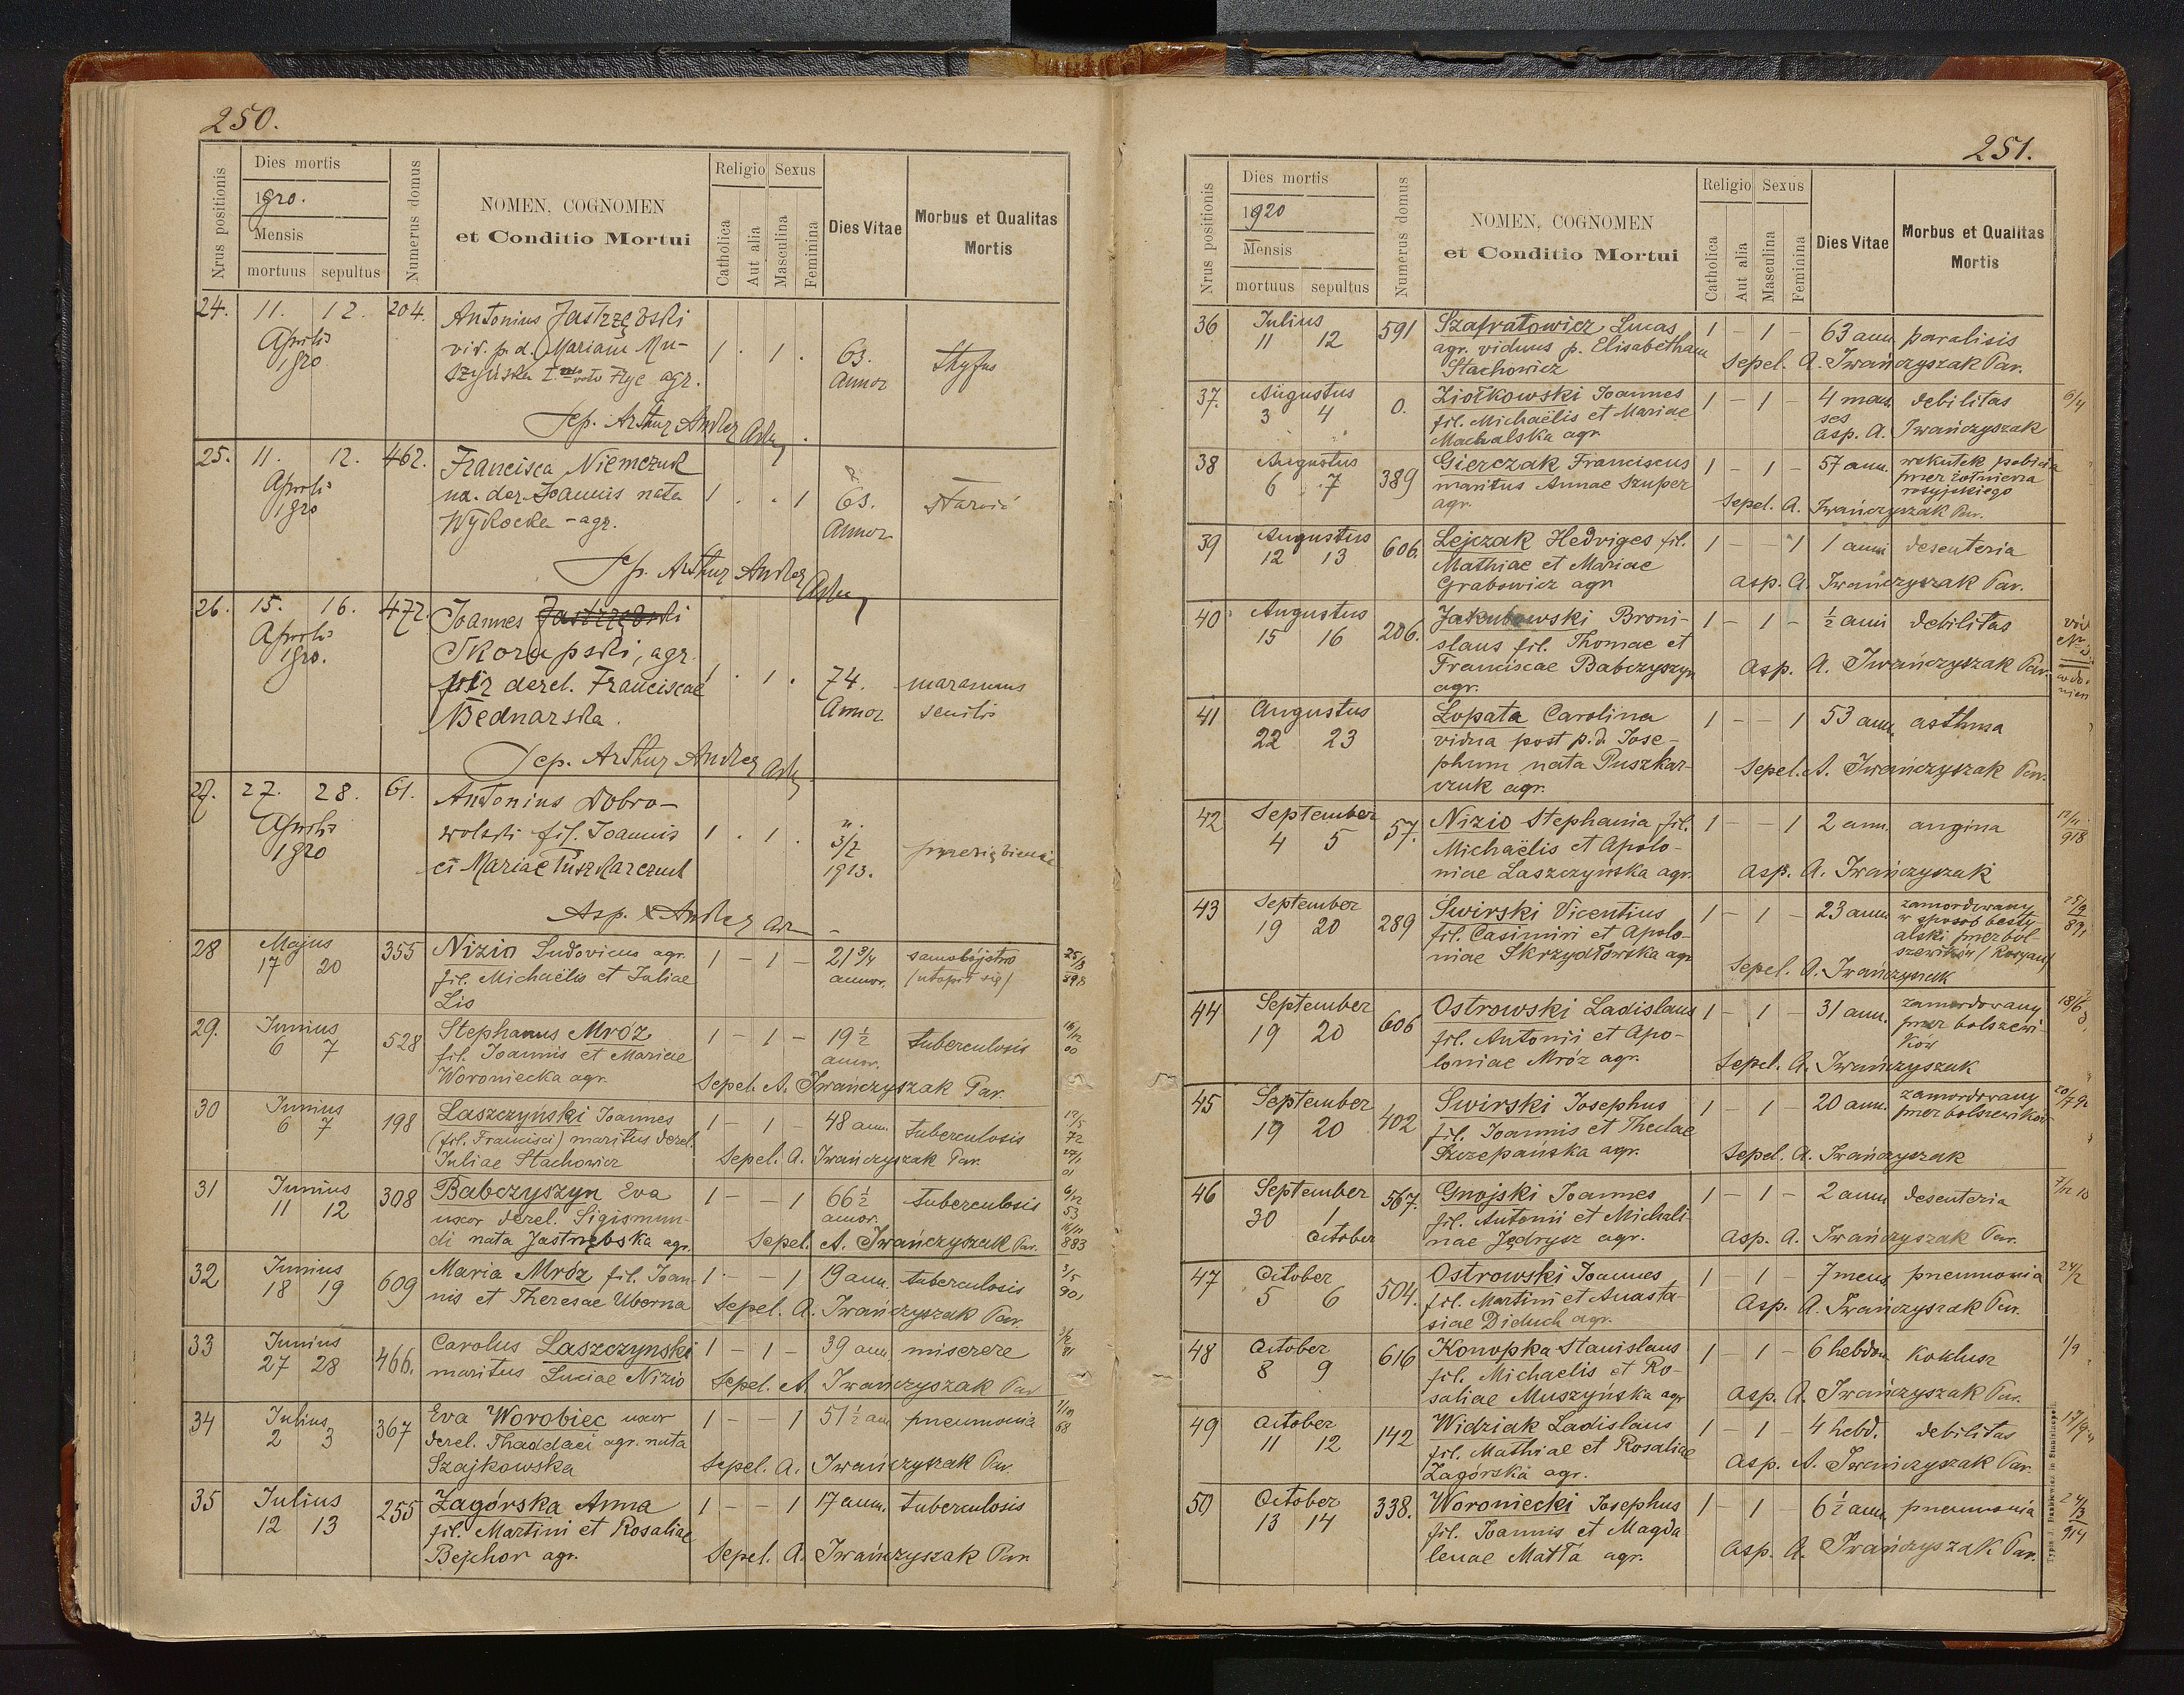 250.
Nrus positionis
Dies mortis
1920.
Mensis
mortuus sepultus
Numerus domus
NOMEN, COGNOMEN
et Conditio Mortui
Religio Sexus
Catholica
Aut alia
Masculina
Feminina
Dies Vitae
Morbus et Qualitas
Mortis
24. 11. 12. 204. Antonius Jastrzębski
Aprilis vid. p. d. Mariam Mu-
1920 szyńska agr. 1 . 1 . 63. thyfus
Annor
Sep. Arthur Andler
25. 11. 12. 462. Francisca Niemczuk
Aprilis ux. der. Joannis nata 1 . . 1 63. starość
1920 Wysocka - agr. Annor
Sep. Arthur Andler
26. 15. 16. 472. Joannes Jastrzębski
Aprilis Skorupski, agr.
1920. vir derel. Franciscae 1 . 1 . 74. marasmus
Bednarska. Annor senilis
Sep. Arthur Andler
27. 27. 28. 61. Antonius Dobro-
Aprilis wolski fil. Joannis 1 . 1 . 3/7
1920 et Mariae Puszkarczuk 1913. przeziębienie
Asp. Andler
28 Majus 355 Nizio Ludovicus agr. 1 - 1 - 21 3/4 samobójstwo 25/8
17 20 fil. Michaëlis et Juliae annor. (utopił się) 898
Lis
29. Junius 528 Stephanus Mróz 1 - 1 - 19 1/2 tuberculosis
6 7 fil. Joannis et Mariae annor. 00
Woroniecka agr. Sepel. A. Iwańczyszak Par.
30 Junius 198 Laszczynski Joannes 1 - 1 - 48 ann. tuberculosis
6 7 (fil. Francisci) maritus derel. 72
Juliae Stachowicz Sepel. A. Iwańczyszak Par.
31 Junius 308 Babczyszyn Eva 1 - - 1 66 1/2 tuberculosis
11 12 uxor derel. Sigismun- annor. 53
di nata Jastrzębska agr. Sepel. A. Iwańczyszak Par. 883
32 Junius 609 Maria Mróz fil. Joan- 1 - - 1 19 ann. tuberculosis 3/5
18 19 nis et Theresae Uberna Sepel. A. Iwańczyszak Par. 901
33 Junius 466. Carolus Laszczynski 1 - 1 - 39 ann. miserere
27 28 maritus Luciae Nizio Sepel. A. Iwańczyszak Par. 81
34 Julius 367 Eva Worobiec uxor 1 - - 1 51 1/2 ann. pneumonia
2 3 derel. Thaddaei agr. nata 68
Szajkowska Sepel. A. Iwańczyszak Par.
35 Julius 255 Zagórska Anna 1 - - 1 17 ann. tuberculosis
12 13 fil. Martini et Rosaliae
Bejchor agr. Sepel. A. Iwańczyszak Par.
251.
Nrus positionis
Dies mortis
1920
Mensis
mortuus sepultus
Numerus domus
NOMEN, COGNOMEN
et Conditio Mortui
Religio Sexus
Catholica
Aut alia
Masculina
Feminina
Dies Vitae
Morbus et Qualitas
Mortis
36 Julius 591 Szafratowicz Lucas 1 - 1 - 63 ann. paralisis
11 12 agr. viduus p. Elisabetham
Stachowicz Sepel. A. Iwańczyszak Par.
37. Augustus 0. Ziołkowski Joannes 1 - 1 - 4 men- debilitas 6/4
3 4 fil. Michaëlis et Mariae ses
Machalska agr Asp. A. Iwańczyszak
38 Augustus 389 Gierczak Franciscus 1 - 1 - 57 ann. wskutek pobicia
6 7 maritus Annae Szuper przez żołnierza
agr. rosyjskiego
Sepel. A. Iwańczyszak Par.
39 Augustus 606. Lejczak Hedviges fil. 1 - - 1 1 anni desenteria
12 13 Mathiae et Mariae
Grabowicz agr Asp. A. Iwańczyszak Par.
40 Augustus 206. Jakubowski Broni- 1 - 1 - 1/2 anni debilitas
15 16 slaus fil. Thomae et
Franciscae Babczyszyn Asp. A. Iwańczyszak Par.
agr.
41 Augustus Łopata Carolina 1 - - 1 53 ann. asthma
22 23 vidua post p.d. Jose-
phum nata Puszkar- Sepel. A. Iwańczyszak Par.
czuk agr.
42 September 57. Nizio Stephania fil. 1 - - 1 2 ann. angina
4 5 Michaëlis et Apolo- 918
niae Laszczynska agr. Asp. A. Iwańczyszak
43 September 289 Swirski Vicentius 1 - 1 - 23 ann. zamordowany
19 20 fil. Casimiri et Apolo- w sposób besty-
niae Skrzydłowska agr alski przez bol-
szewików (Rosyan)
Sepel. A. Iwańczyszak
44 September 606 Ostrowski Ladislaus 1 - 1 - 31 ann. zamordowany 18/6
19 20 fil. Antonii et Apo- przez bolszewi-
loniae Mróz agr. ków
Sepel. A. Iwańczyszak
45 September 402 Swirski Josephus 1 - 1 - 20 ann. zamordowany
19 20 fil. Joannis et Theclae przez bolszewików
Szczepańska agr. Sepel. A. Iwańczyszak
46 September 567. Gnojski Joannes 1 - 1 - 2 ann. desenteria
30 1 fil. Antonii et Michali-
October nae Jędrysz agr. Asp. A. Iwańczyszak Par.
47 October 504. Ostrowski Joannes 1 - 1 - 7 mens. pneumonia 24/2
5 6 fil. Martini et Anasta-
siae Diduch agr. Asp. A. Iwańczyszak Par.
48 October 616 Konopka Stanislaus 1 - 1 - 6 hebdom koklusz 1/9
8 9 fil. Michaelis et Ro-
saliae Muszyńska agr Asp. A. Iwańczyszak Par.
49 October 142 Widziak Ladislaus 1 - 1 - 4 hebd. debilitas 17/9
11 12 fil. Mathiae et Rosaliae
Zagórska agr. Asp. A. Iwańczyszak Par.
50 October 338. Woroniecki Josephus 1 - 1 6 1/2 ann. pneumonia
13 14 fil. Joannis et Magda 914
lenae Matła agr. Asp. A. Iwańczyszak Par.